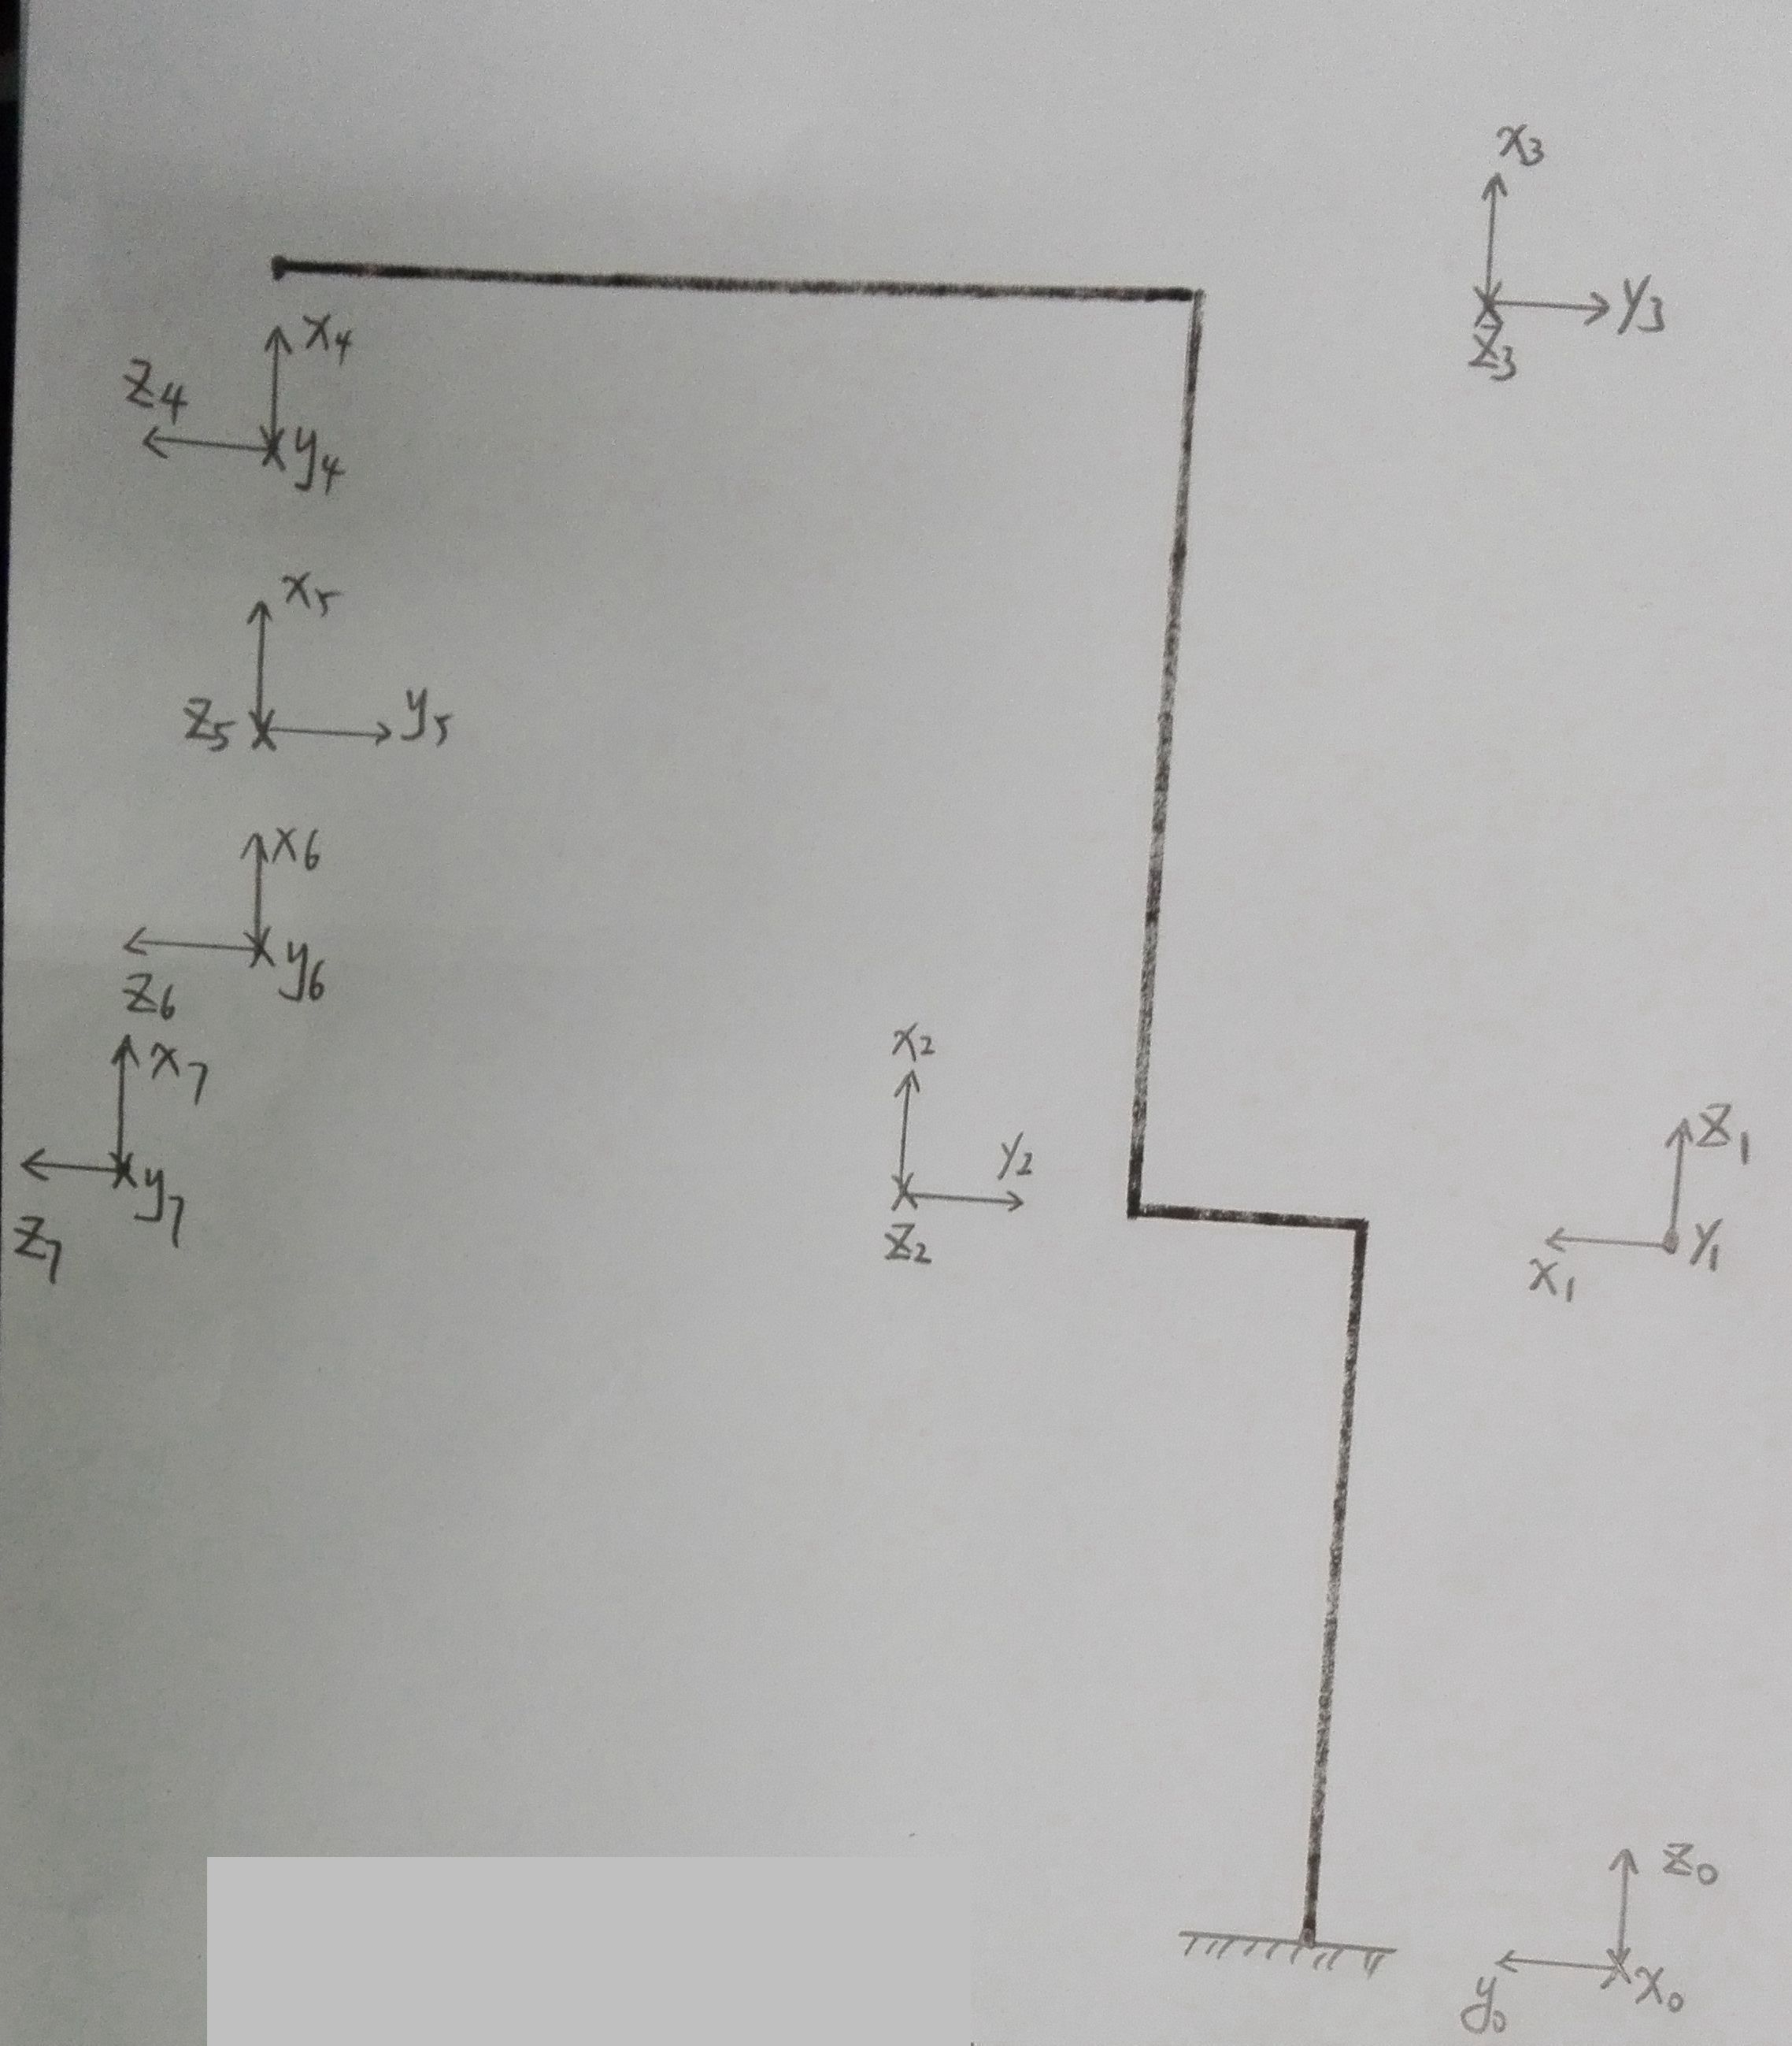 x3
y3
z3
x4
z4
y4
x5
z5 y5
x6
y6
z6
x7
y7
z7
x2
y2
z2
z1
y1
x1
z0
x0
y0